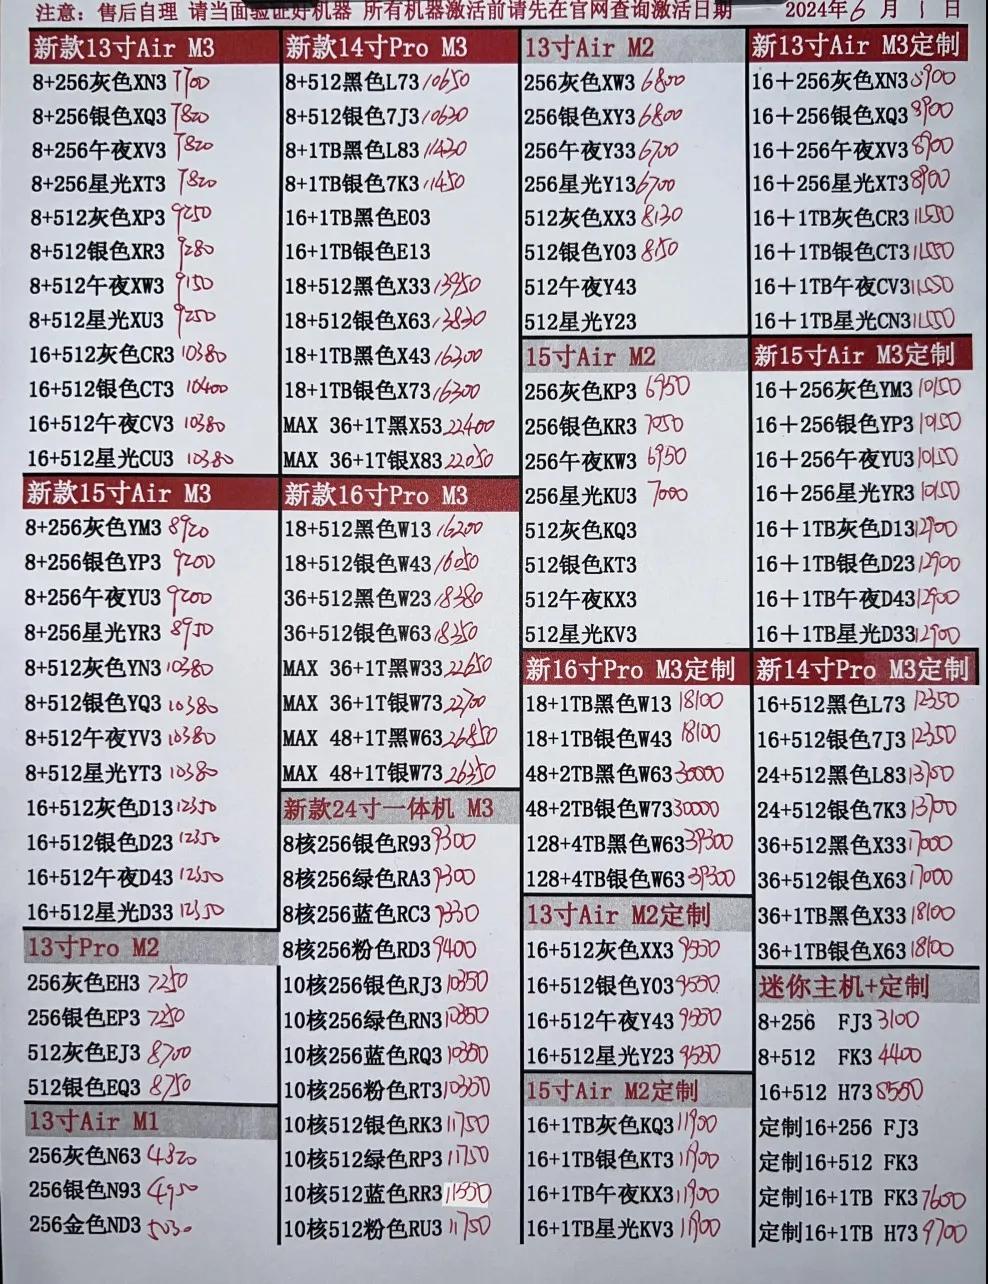 注意：售后自理 请当面验证好机器 所有机器激活前请先在官网查询激活日期 2024年6月1日
新款13寸Air M3
8+256灰色XN3 7700
8+256银色XQ3 7820
8+256午夜XV3 7820
8+256星光XT3 7820
8+512灰色XP3 9250
8+512银色XR3 9280
8+512午夜XW3 9150
8+512星光XU3 9250
16+512灰色CR3 10380
16+512银色CT3 10400
16+512午夜CV3 10380
16+512星光CU3 10380
新款15寸Air M3
8+256灰色YM3 8920
8+256银色YP3 9200
8+256午夜YU3 9200
8+256星光YR3 8950
8+512灰色YN3 10380
8+512银色YQ3 10380
8+512午夜YV3 10380
8+512星光YT3 10380
16+512灰色D13 12350
16+512银色D23 12350
16+512午夜D43 12350
16+512星光D33 12350
13寸Pro M2
256灰色EH3 7250
256银色EP3 7250
512灰色EJ3 8700
512银色EQ3 8750
13寸Air M1
256灰色N63 4820
256银色N93 4950
256金色ND3 5030
新款14寸Pro M3
8+512黑色L73 10650
8+512银色7J3 10630
8+1TB黑色L83 11430
8+1TB银色7K3 11450
16+1TB黑色E03
16+1TB银色E13
18+512黑色X33 13950
18+512银色X63 13830
18+1TB黑色X43 16300
18+1TB银色X73 16300
MAX 36+1T黑X53 22400
MAX 36+1T银X83 22050
新款16寸Pro M3
18+512黑色W13 16200
18+512银色W43 16050
36+512黑色W23 18380
36+512银色W63 18350
MAX 36+1T黑W33 22650
MAX 36+1T银W73 22700
MAX 48+1T黑W63 26850
MAX 48+1T银W73 26350
新款24寸一体机 M3
8核256银色R93 9300
8核256绿色RA3 9300
8核256蓝色RC3 9330
8核256粉色RD3 9400
10核256银色RJ3 10350
10核256绿色RN3 10350
10核256蓝色RQ3 10350
10核256粉色RT3 10350
10核512银色RK3 11750
10核512绿色RP3 11750
10核512蓝色RR3 11550
10核512粉色RU3 11750
13寸Air M2
256灰色XW3 6800
256银色XY3 6800
256午夜Y33 6700
256星光Y13 6700
512灰色XX3 8130
512银色Y03 8150
512午夜Y43
512星光Y23
15寸Air M2
256灰色KP3 6950
256银色KR3 7050
256午夜KW3 6950
256星光KU3 7000
512灰色KQ3
512银色KT3
512午夜KX3
512星光KV3
新16寸Pro M3定制
18+1TB黑色W13 18100
18+1TB银色W43 18100
48+2TB黑色W63 30000
48+2TB银色W73 30000
128+4TB黑色W63 39300
128+4TB银色W63 39300
13寸Air M2定制
16+512灰色XX3 9550
16+512银色Y03 9550
16+512午夜Y43 9550
16+512星光Y23 9550
15寸Air M2定制
16+1TB灰色KQ3 11900
16+1TB银色KT3 11900
16+1TB午夜KX3 11900
16+1TB星光KV3 11900
新13寸Air M3定制
16＋256灰色XN3 8900
16＋256银色XQ3 8900
16＋256午夜XV3 8900
16＋256星光XT3 8900
16＋1TB灰色CR3 11550
16＋1TB银色CT3 11550
16＋1TB午夜CV3 11550
16＋1TB星光CN3 11550
新15寸Air M3定制
16＋256灰色YM3 10150
16＋256银色YP3 10150
16＋256午夜YU3 10150
16＋256星光YR3 10150
16＋1TB灰色D13 12900
16＋1TB银色D23 12900
16＋1TB午夜D43 12900
16＋1TB星光D33 12900
新14寸Pro M3定制
16+512黑色L73 12350
16+512银色7J3 12350
24+512黑色L83 13700
24+512银色7K3 13700
36+512黑色X33 17000
36+512银色X63 17000
36+1TB黑色X33 18100
36+1TB银色X63 18100
迷你主机+定制
8+256 FJ3 3100
8+512 FK3 4400
16+512 H73 8550
定制16+256 FJ3
定制16+512 FK3
定制16+1TB FK3 7600
定制16+1TB H73 9700